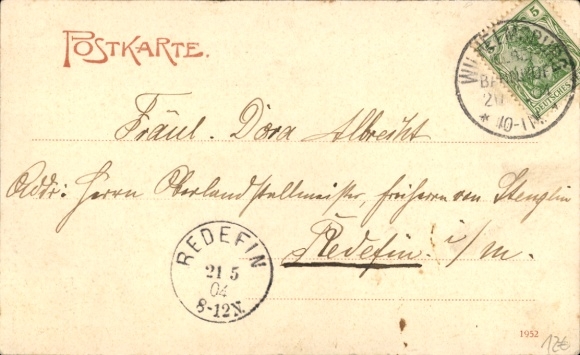 POSTKARTE.
5
BAHNHOF
20
* 10-11
Fräul. Dora Albrecht
Addr: Herrn Oberlandstallmeister, Freiherrn von Stenglin
Redefin. i/m.
REDEFIN
21 5
04
8-12N.
1952
12€